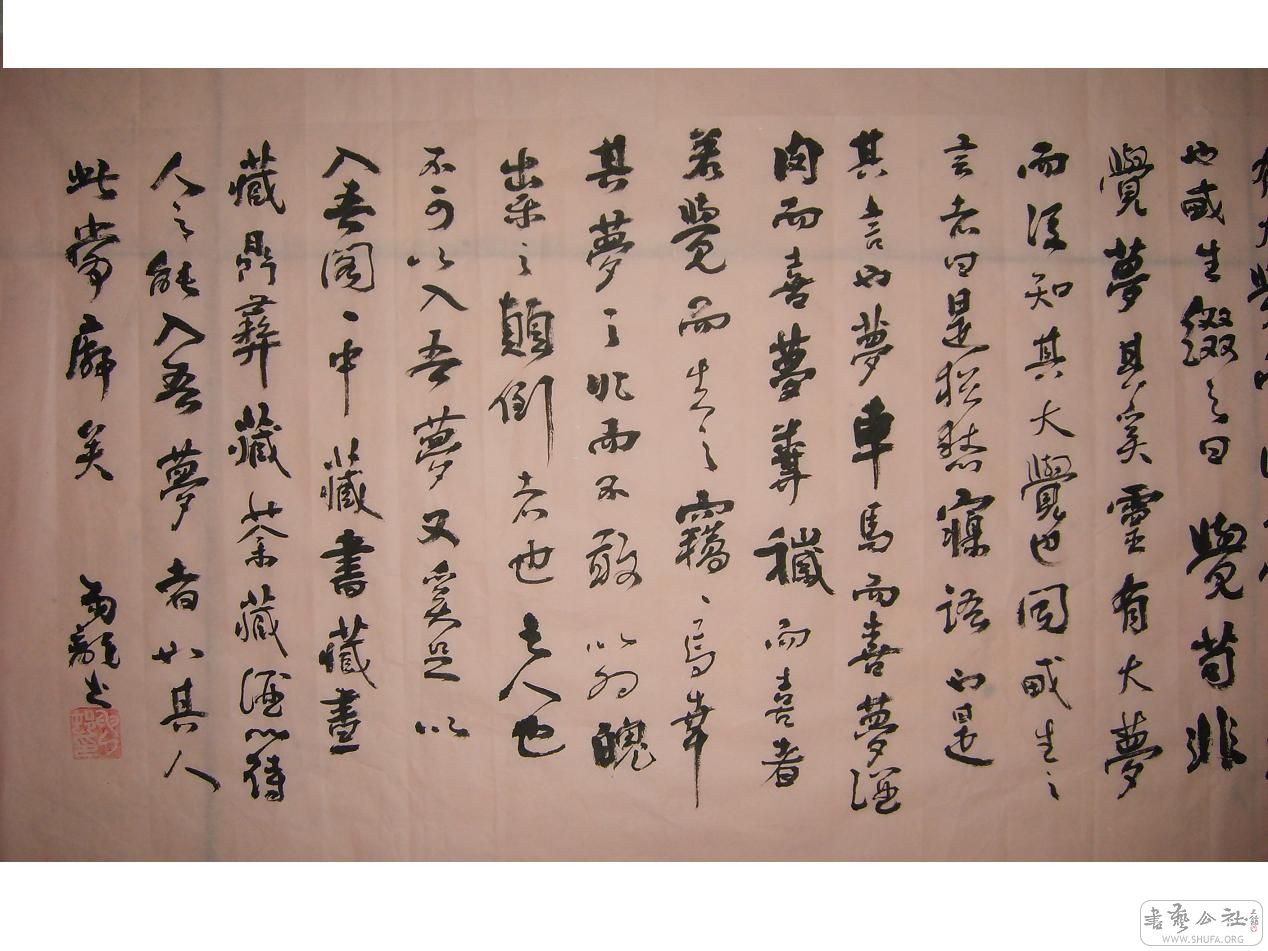 也或生綴之曰覺苟非
覺夢其奚靈有大夢
而後知其大覺也同或生之
言者曰是猶語也是
其言也夢車馬而喜夢酒
肉而喜夢而喜者
若覺而失之竊〻焉幸
其夢之非而不敢以為醜
之顛倒者也夫人也
不可以入吾夢又奚足以
入吾閣〻中藏書藏畫
藏鼎彝藏茶藏酒以待
人之能入吾夢者如其人
此當矣
書藝公社
WWW.SHUFA.ORG